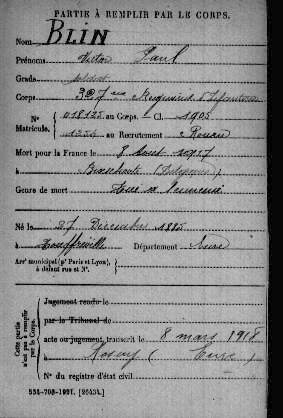 PARTIE À REMPLIR PAR LE CORPS.
Nom BLIN
Prénoms Victor Paul
Grade soldat
Corps 327 me Regiment d'Infanterie
N° 018125 au Corps. — Cl. 1905
Matricule. 1354 au Recrutement Rouen
Mort pour la France le 8 aout 1917
à (Belgique)
Genre de mort Tué à l'ennemi
Né le 27 Décembre 1885
à Département Eure
Arr' municipal (p' Paris et Lyon),
à défaut rue et N°.
Cette partie
n'est pas à remplir
par le Corps.
Jugement rendu le
par le Tribunal de
acte ou jugement, transcrit le 8 mars 1918
à Rosay (Eure)
N° du registre d'état civil
534-708-1921. [26434.]